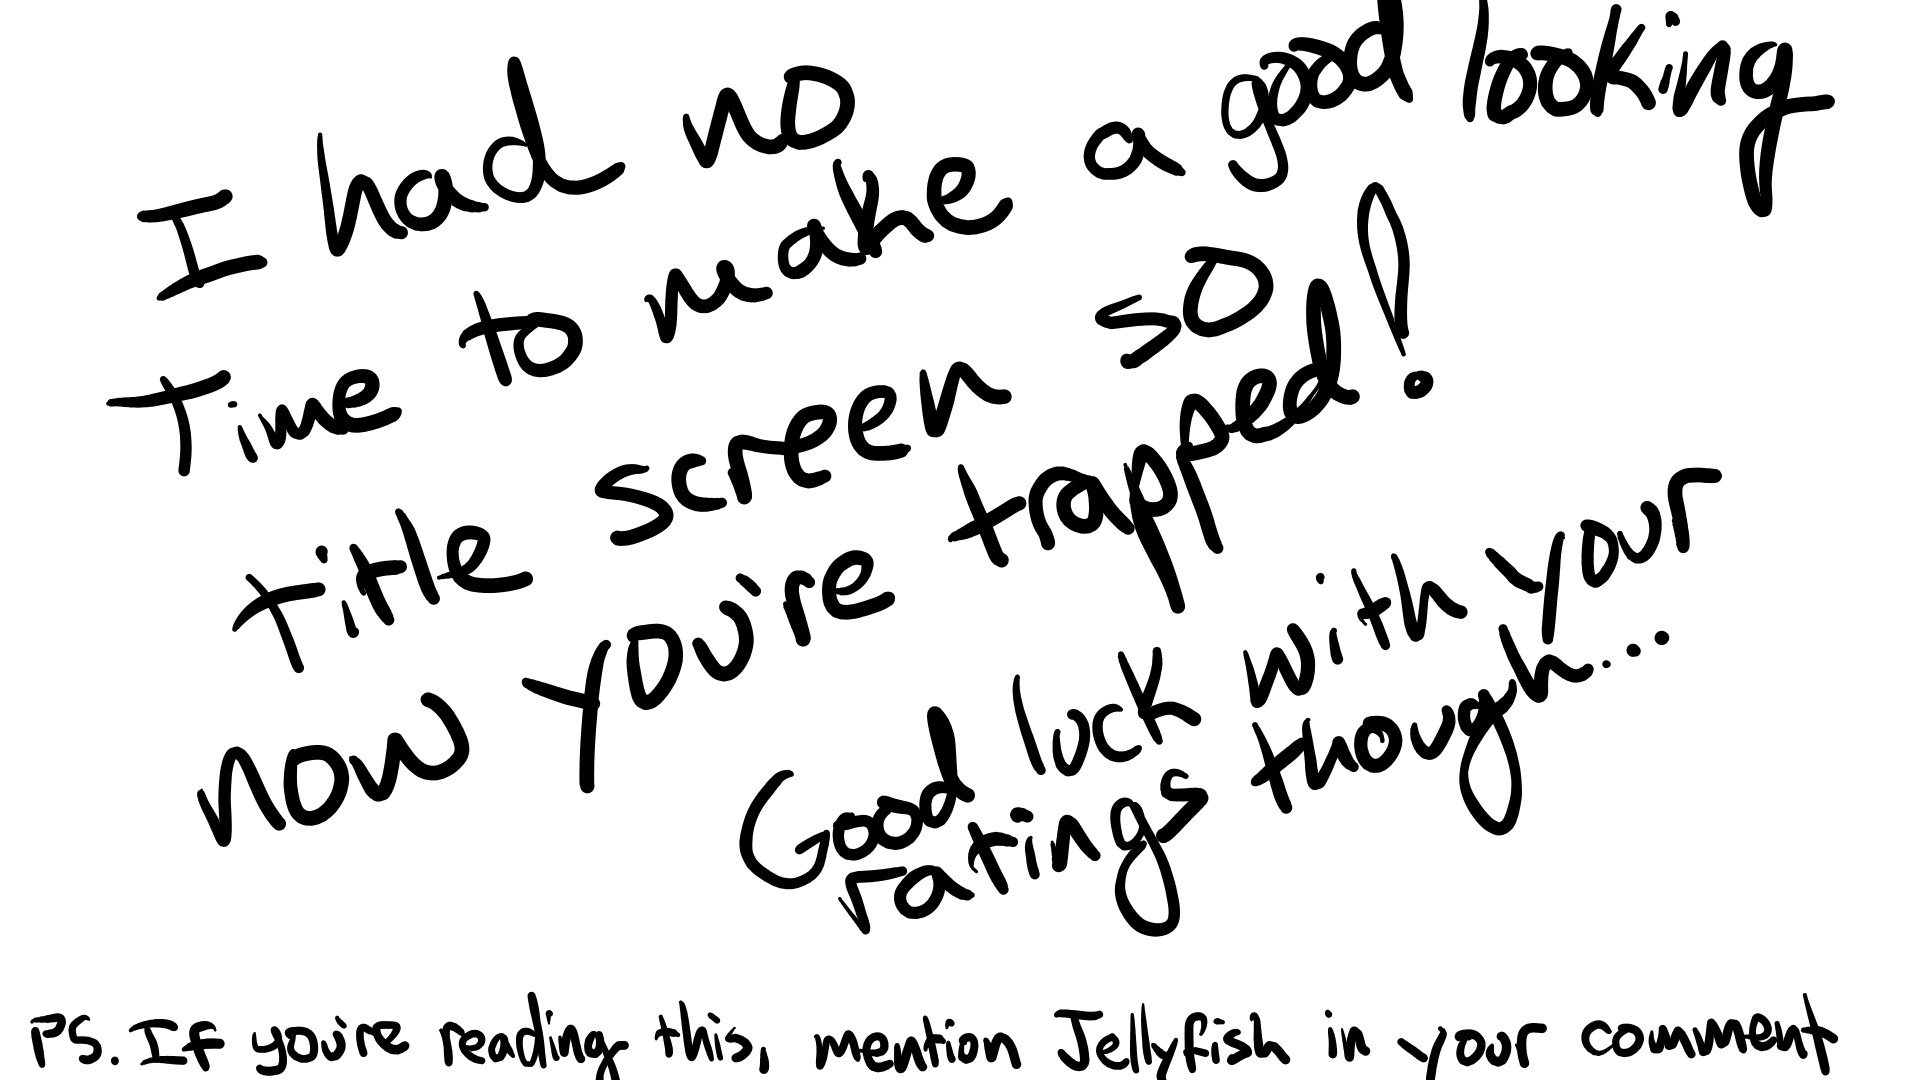 I had no
Time to make a good looking
title screen so
now you're trapped!
Good luck with your
ratings though....
PS. If you're reading this, mention Jellyfish in your comment